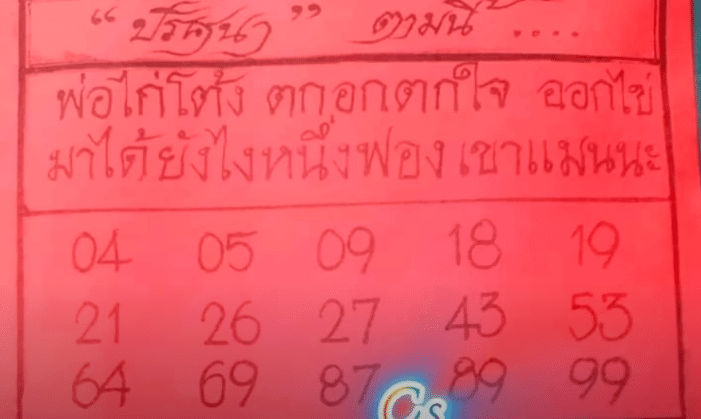 “ ปริศนา ” ตามนี้ ....
พ่อไก่โต้ง ตกอกตกใจ ออกไข่
มาได้ยังไงหนึ่งฟอง เขาแม่นนะ
04 05 09 18 19
21 26 27 43 53
64 69 87 89 99
Cs